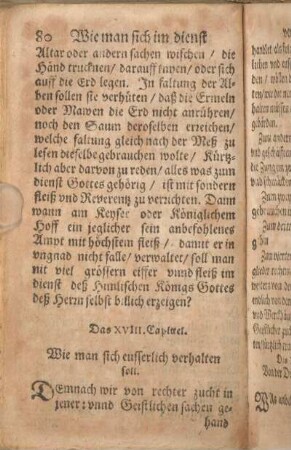 80 Wie man sich im dienst
Altar oder andern sachen wischen / die
Händ trucknen / darauff / oder sich
auff die Erd legen. In faltung der Al-
ben sollen sie verhüten / daß die Ermeln
oder Mawen die Erd nicht anrühren /
noch den Saum deroselben erreichen /
welche faltung gleich nach der Meß zu
lesen dieselbe gebrauchen wolte / Kürtz-
lich aber darvon zu reden / alles was zum
dienst Gottes gehörig / ist mit sondern
fleiß vnd Reverentz zu verrichten. Dann
wann am Keyser oder Königlichem
Hoff ein jeglicher sein anbefohlenes
Ampt mit höchstem fleiß / damit er in
vngnad nicht falle / verwaltet / soll man
mit viel grössern eiffer vnd fleiß im
dienst deß Himlischen Königs Gottes
deß Herrn selbst erzeigen?
Das XVIII. Capitel.
Wie man sich eusserlich verhalten
soll.
Demnach wir von rechter zucht in
jener: vnnd Geistlichen sachen ge-
hand